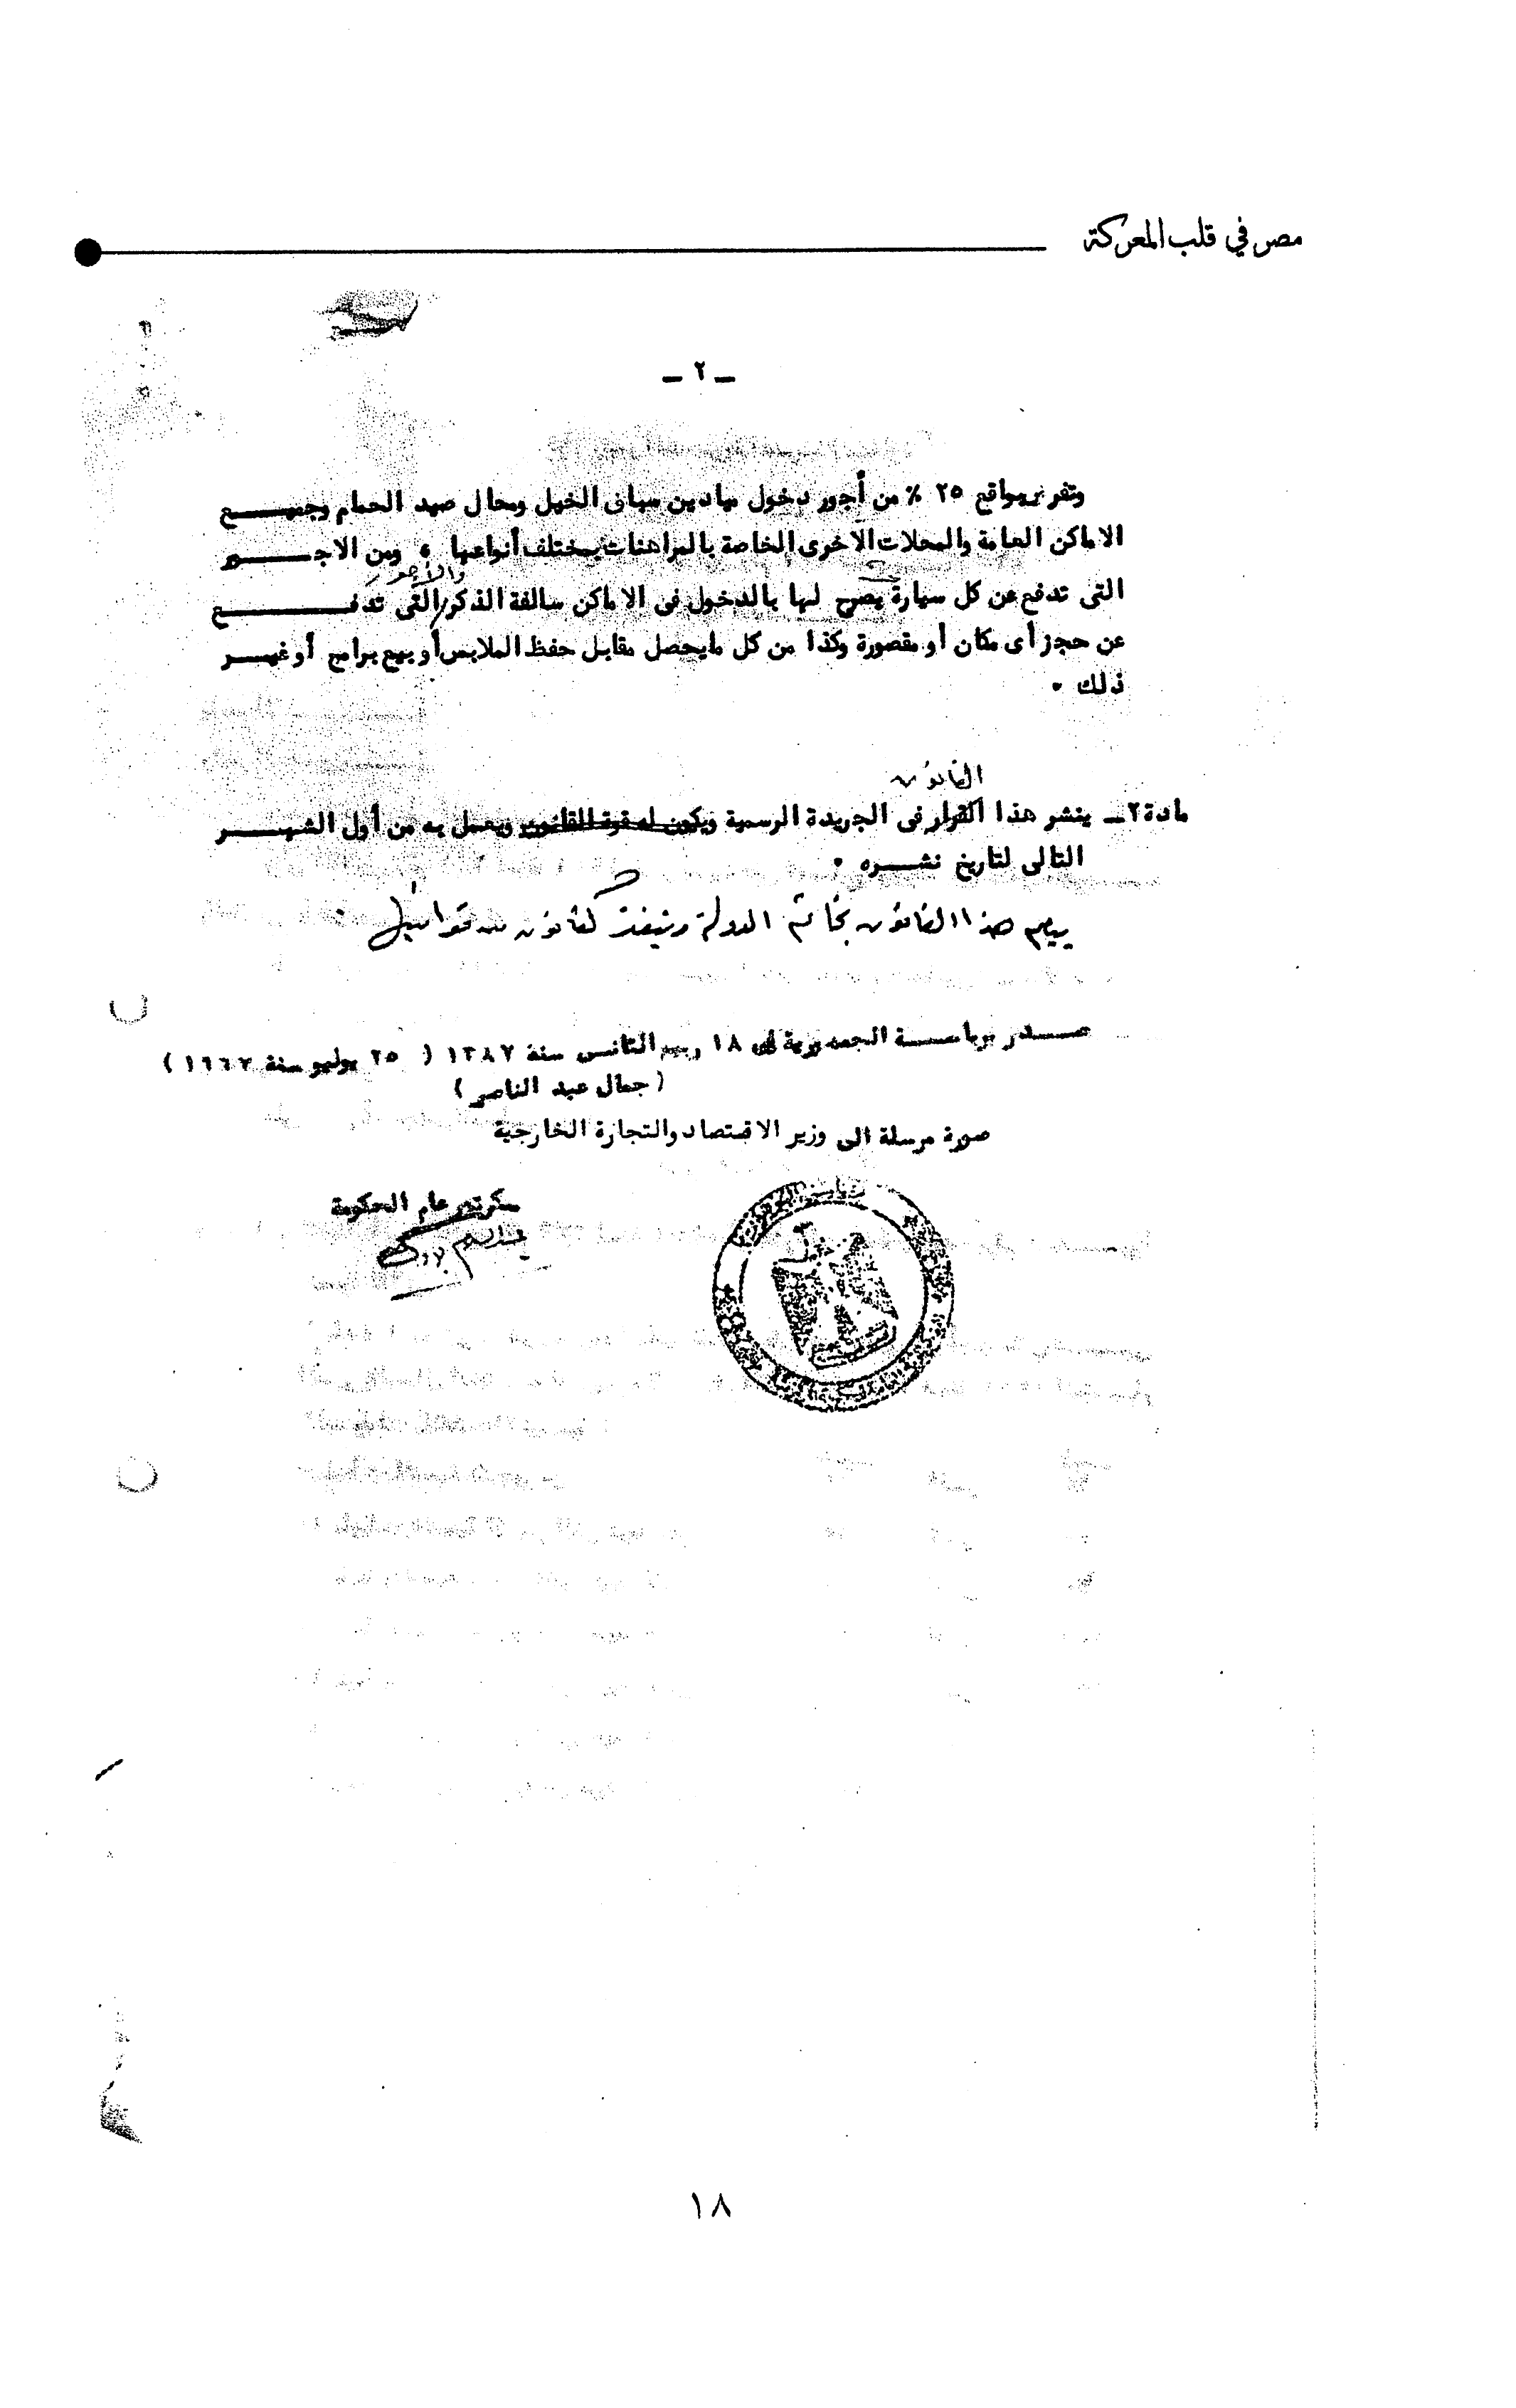 مصر في قلب المعركة
ـ ٢ ـ
وتفرض بواقع ٢٥ ٪ من أجور دخول ميادين سباق الخيل ومحال صيد الحمام وجميـــــع
الاماكن العامة والمحلات الآخرى الخاصة بالمراهنات بمختلف أنواعها ٠ ومن الاجـــــور
والأجور
التى تدفع عن كل سيارة يصرح لها بالدخول فى الاماكن سالفة الذكر/التى تدفـــــــع
عن حجز أى مكان أو مقصورة وكذا من كل مايحصل مقابل حفظ الملابس أو بيع برامج أو غيـــر
ذلك ٠
القانون
مادة ٢ـ ينشر هذا القرار فى الجريدة الرسمية ويكون له قوة القانون ويعمل به من أول الشهـــــر
التالى لتاريخ نشـــره ٠
يبصم هذا القانون بخاتم الدولة وينفذ كقانون من قوانينها ٠
صـــدر برياســـة الجمهورية فى ١٨ ربيع الثانى سنة ١٣٨٧ ( ٢٥ يوليو سنة ١٩٦٧ )
( جمال عبد الناصر )
صورة مرسلة الى وزير الاقتصاد والتجارة الخارجية
سكرتير عام الحكومة
١٨